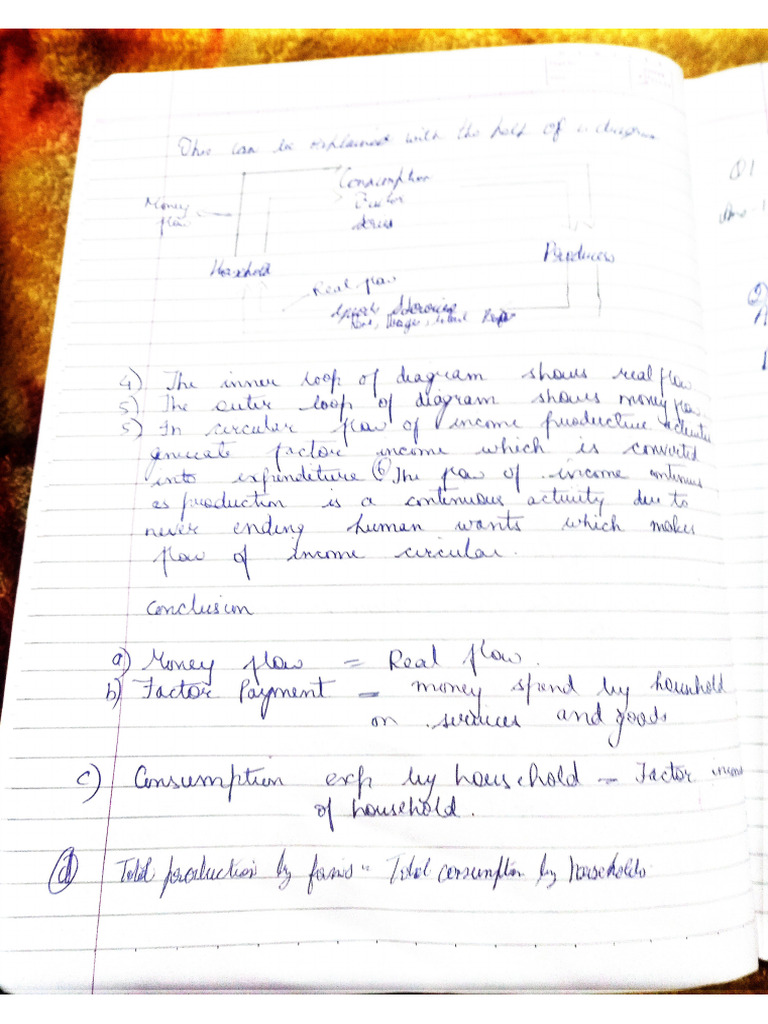 This can be explained with the help of a diagram
Consumption
Money
flow
Factor
Household
Producers
Real flow
4) The inner loop of diagram shows real flow
5) The outer loop of diagram shows money flow
5) In circular flow of income productive
generate factor income which is converted
into expenditure 6) The flow of income continues
as production is a continuous activity due to
never ending human wants which makes
flow of income circular.
Conclusion
a) Money flow = Real flow.
b) Factor Payment = money spend by household
on services and goods
c) Consumption exp by household = Factor income
of household.
d) Total production by firms = Total consumption by households
Q1